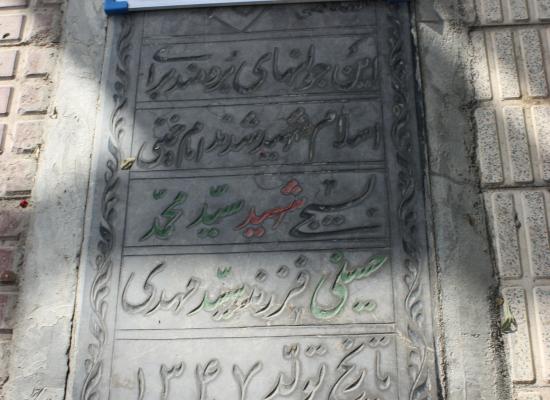 این جوانهای برومند برای
اسلام شهید شدند امام خمینی
بسیجی شهید سیّد محمّد
حسینی فرزند سیّد مهدی
تاریخ تولّد ۱۳۴۷